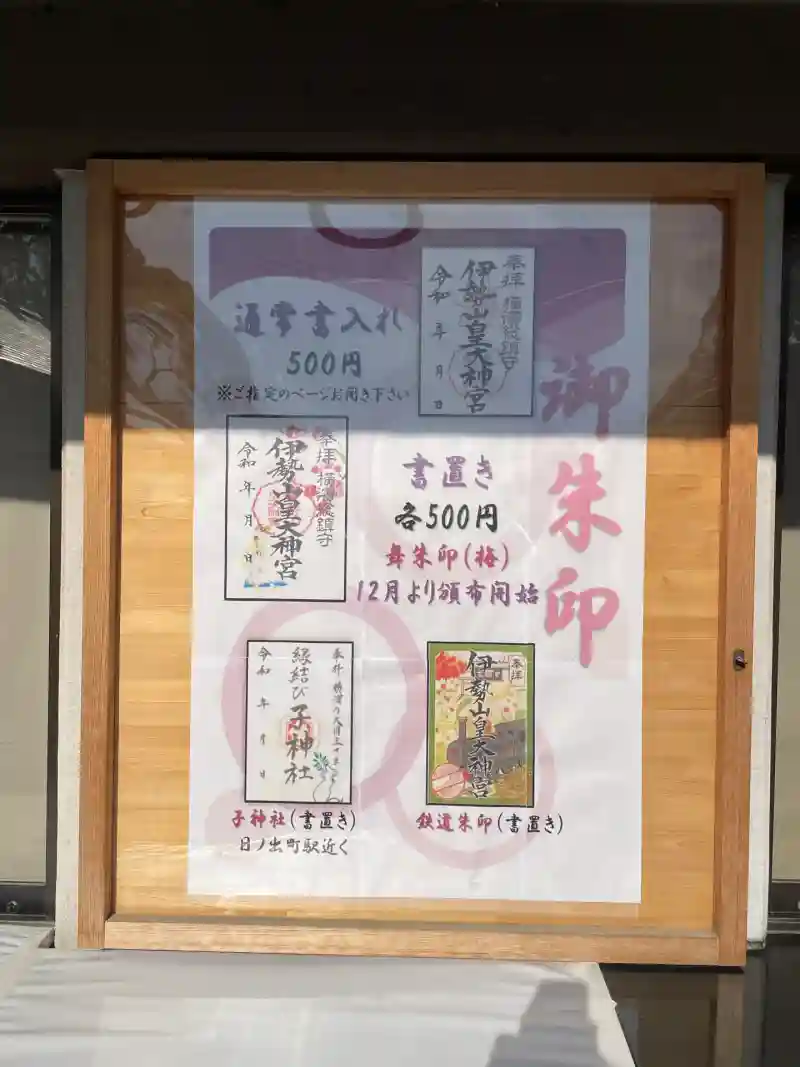 御朱印
通常書入れ
500円
※ご指定のページお開き下さい
奉拝 横濱総鎮守
伊勢山皇大神宮
令和 年 月 日
書置き
各500円
舞朱印(梅)
12月より頒布開始
奉拝 横濱総鎮守
伊勢山皇大神宮
令和 年 月 日
縁結び 子神社
令和 年 月 日
子神社(書置き)
日ノ出町駅近く
奉拝
伊勢山皇大神宮
鉄道朱印(書置き)